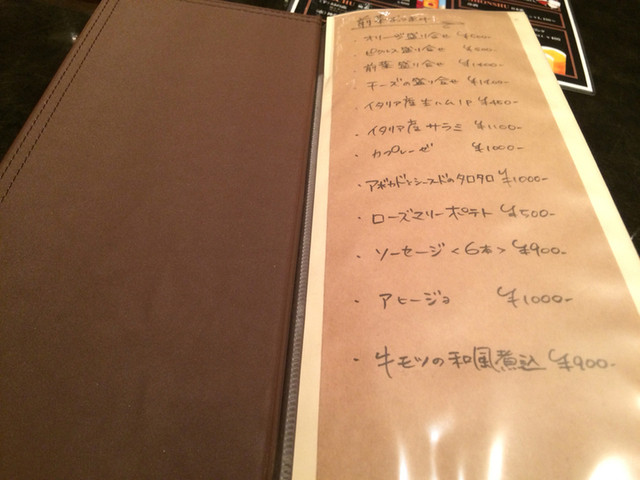 ・オリーブ盛り合せ ¥500-
・ピクルス盛り合せ ¥500-
・前菜盛り合せ
・チーズの盛り合せ
・イタリア産生ハム1P ¥450-
・イタリア産サラミ ¥1100-
・カプレーゼ ¥1000-
・アボカドとシーフードのタロタロ ¥1000-
・ローズマリーポテト ¥500-
・ソーセージ<6本> ¥900-
・アヒージョ ¥1000-
・牛モツの和風煮込 ¥900-